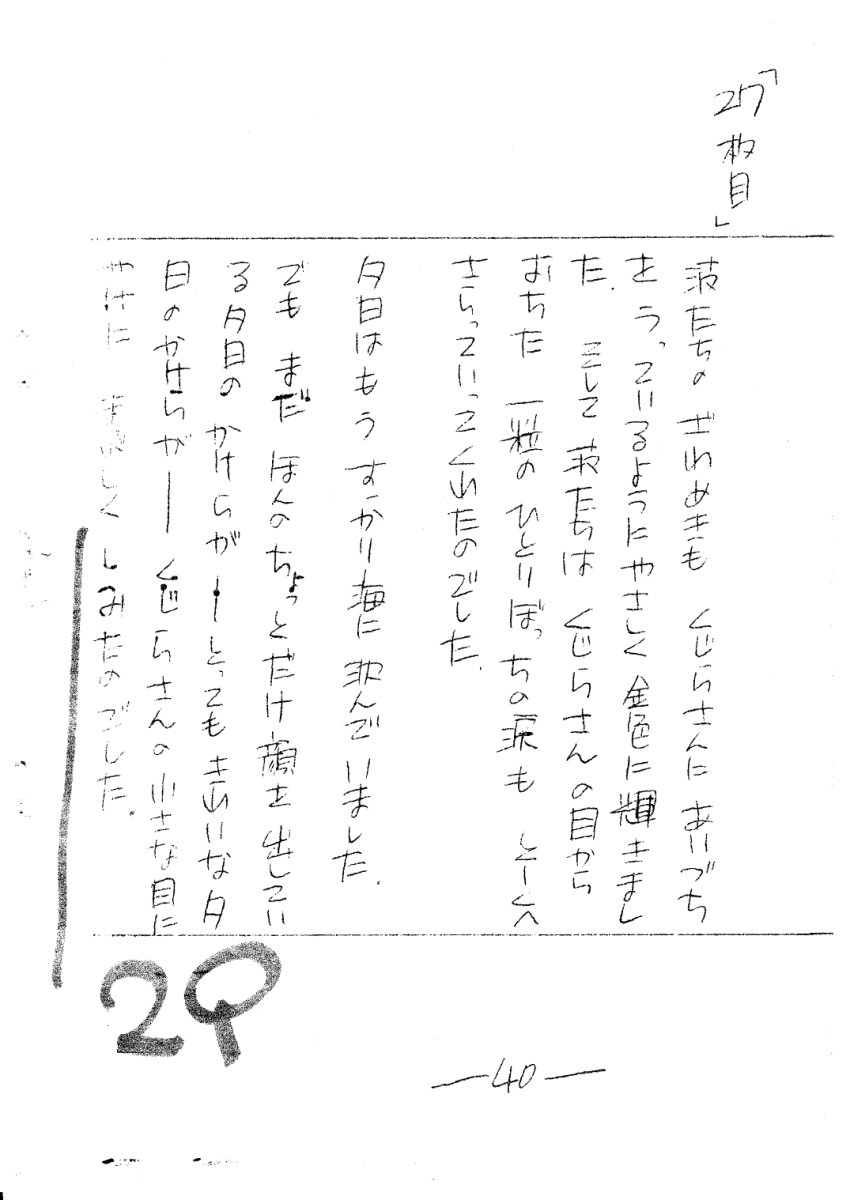 「27枚目」
波たちの ざわめきも くじらさんに あいづち
を うっているようにやさしく 金色に輝きまし
た. そして 波たちは くじらさんの目から
おちた 一粒の ひとりぼっちの涙も とーくへ
さらっていってくれたのでした.
夕日はもう すっかり海に 沈んでいました.
でも まだ ほんのちょっとだけ顔を出してい
る夕日の かけらが ーとっても きれいな夕
日のかけらが ―― くじらさんの小さな目に
やけに しみたのでした.
29
—40—